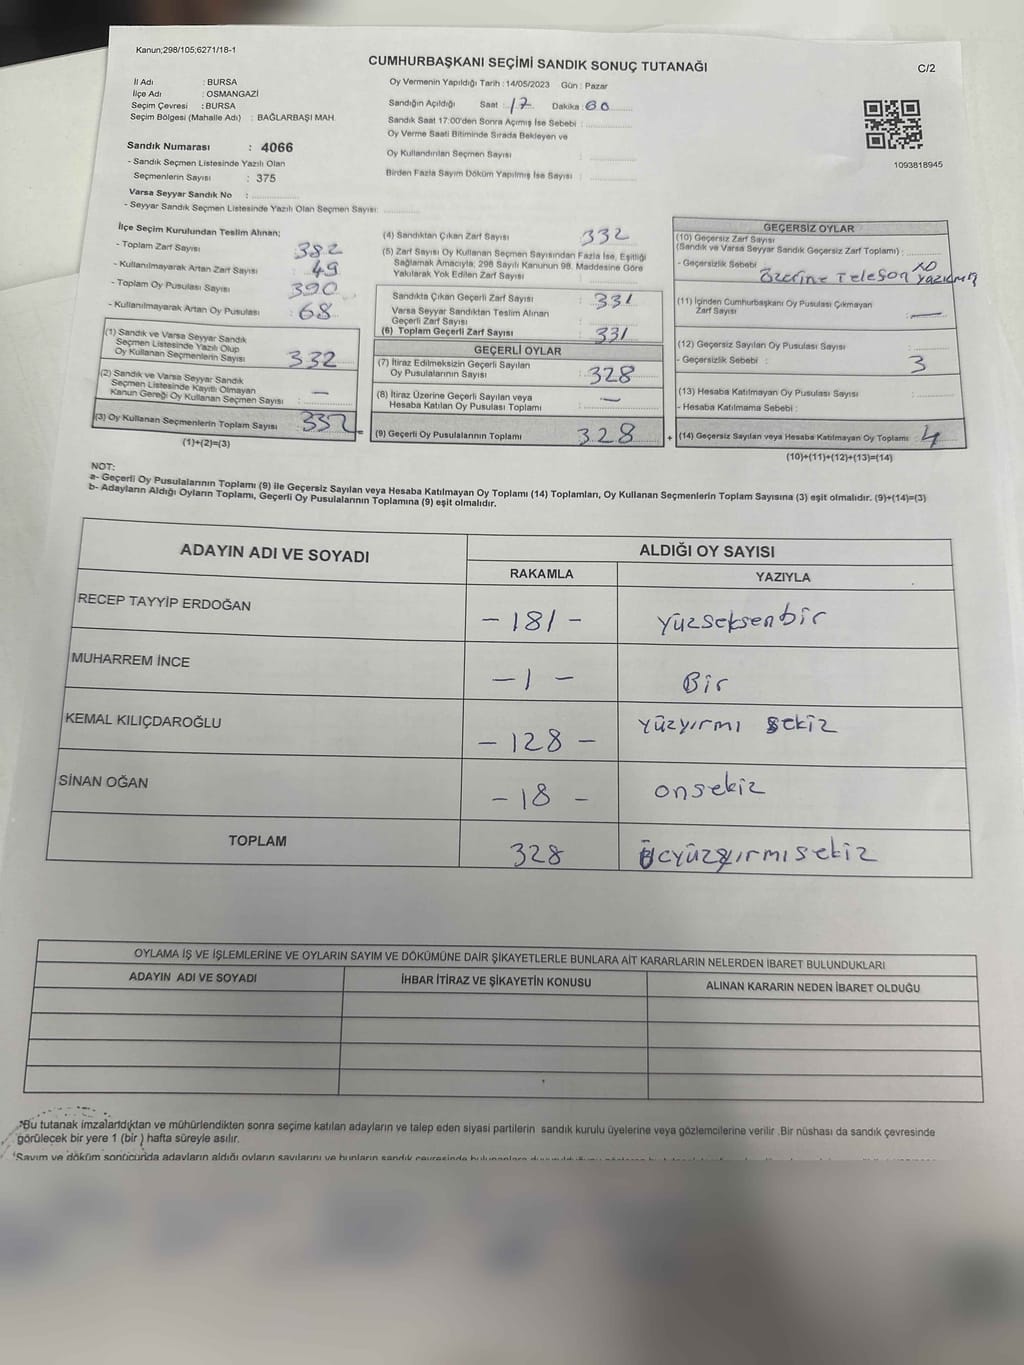 Kanun;298/105;6271/18-1
CUMHURBAŞKANI SEÇİMİ SANDIK SONUÇ TUTANAĞI
C/2
İl Adı : BURSA
İlçe Adı : OSMANGAZİ
Seçim Çevresi : BURSA
Seçim Bölgesi (Mahalle Adı) : BAĞLARBAŞI MAH.
Oy Vermenin Yapıldığı Tarih : 14/05/2023 Gün : Pazar
Sandığın Açıldığı Saat : 17 Dakika : 00
Sandık Saat 17:00'den Sonra Açımış İse Sebebi :
Oy Verme Saati Bitiminde Sırada Bekleyen ve
Oy Kullandırılan Seçmen Sayısı :
Birden Fazla Sayım Döküm Yapılmış İse Sayısı :
1093818945
Sandık Numarası : 4066
- Sandık Seçmen Listesinde Yazılı Olan
Seçmenlerin Sayısı : 375
Varsa Seyyar Sandık No :
- Seyyar Sandık Seçmen Listesinde Yazılı Olan Seçmen Sayısı:
İlçe Seçim Kurulundan Teslim Alınan;
- Toplam Zarf Sayısı : 382
- Kullanılmayarak Artan Zarf Sayısı : 49
- Toplam Oy Pusulası Sayısı : 390
- Kullanılmayarak Artan Oy Pusulası : 68
(1) Sandık ve Varsa Seyyar Sandık
Seçmen Listesinde Yazılı Olup
Oy Kullanan Seçmenlerin Sayısı : 332
(2) Sandık ve Varsa Seyyar Sandık
Seçmen Listesinde Kayıtlı Olmayan
Kanun Gereği Oy Kullanan Seçmen Sayısı : —
(3) Oy Kullanan Seçmenlerin Toplam Sayısı : 332
(1)+(2)=(3)
(4) Sandıktan Çıkan Zarf Sayısı : 332
(5) Zarf Sayısı Oy Kullanan Seçmen Sayısından Fazla İse, Eşitliği
Sağlamak Amacıyla; 298 Sayılı Kanunun 98. Maddesine Göre
Yakılarak Yok Edilen Zarf Sayısı :
Sandıkta Çıkan Geçerli Zarf Sayısı : 331
Varsa Seyyar Sandıktan Teslim Alınan
Geçerli Zarf Sayısı :
(6) Toplam Geçerli Zarf Sayısı : 331
GEÇERLİ OYLAR
(7) İtiraz Edilmeksizin Geçerli Sayılan
Oy Pusulalarının Sayısı : 328
(8) İtiraz Üzerine Geçerli Sayılan veya
Hesaba Katılan Oy Pusulası Toplamı : —
(9) Geçerli Oy Pusulalarının Toplamı : 328
GEÇERSİZ OYLAR
(10) Geçersiz Zarf Sayısı
(Sandık ve Varsa Seyyar Sandık Geçersiz Zarf Toplamı) :
- Geçersizlik Sebebi : Üzerine Telefon NO yazılmış
(11) İçinden Cumhurbaşkanı Oy Pusulası Çıkmayan
Zarf Sayısı : —
(12) Geçersiz Sayılan Oy Pusulası Sayısı :
- Geçersizlik Sebebi : 3
(13) Hesaba Katılmayan Oy Pusulası Sayısı :
- Hesaba Katılmama Sebebi :
(14) Geçersiz Sayılan veya Hesaba Katılmayan Oy Toplamı : 4
(10)+(11)+(12)+(13)=(14)
NOT:
a- Geçerli Oy Pusulalarının Toplamı (9) ile Geçersiz Sayılan veya Hesaba Katılmayan Oy Toplamı (14) Toplamları, Oy Kullanan Seçmenlerin Toplam Sayısına (3) eşit olmalıdır. (9)+(14)=(3)
b- Adayların Aldığı Oyların Toplamı, Geçerli Oy Pusulalarının Toplamına (9) eşit olmalıdır.
ADAYIN ADI VE SOYADI
ALDIĞI OY SAYISI
RAKAMLA YAZIYLA
RECEP TAYYİP ERDOĞAN - 181 - yüzseksenbir
MUHARREM İNCE - 1 - Bir
KEMAL KILIÇDAROĞLU - 128 - yüzyirmi sekiz
SİNAN OĞAN - 18 - onsekiz
TOPLAM 328 üçyüzyirmisekiz
OYLAMA İŞ VE İŞLEMLERİNE VE OYLARIN SAYIM VE DÖKÜMÜNE DAİR ŞİKAYETLERLE BUNLARA AİT KARARLARIN NELERDEN İBARET BULUNDUKLARI
ADAYIN ADI VE SOYADI İHBAR İTİRAZ VE ŞİKAYETİN KONUSU ALINAN KARARIN NEDEN İBARET OLDUĞU
*Bu tutanak imzalandıktan ve mühürlendikten sonra seçime katılan adayların ve talep eden siyasi partilerin sandık kurulu üyelerine veya gözlemcilerine verilir .Bir nüshası da sandık çevresinde
görülecek bir yere 1 (bir ) hafta süreyle asılır.
*Sayım ve döküm sonucunda adayların aldığı oyların sayılarını ve bunların sandık çevresinde